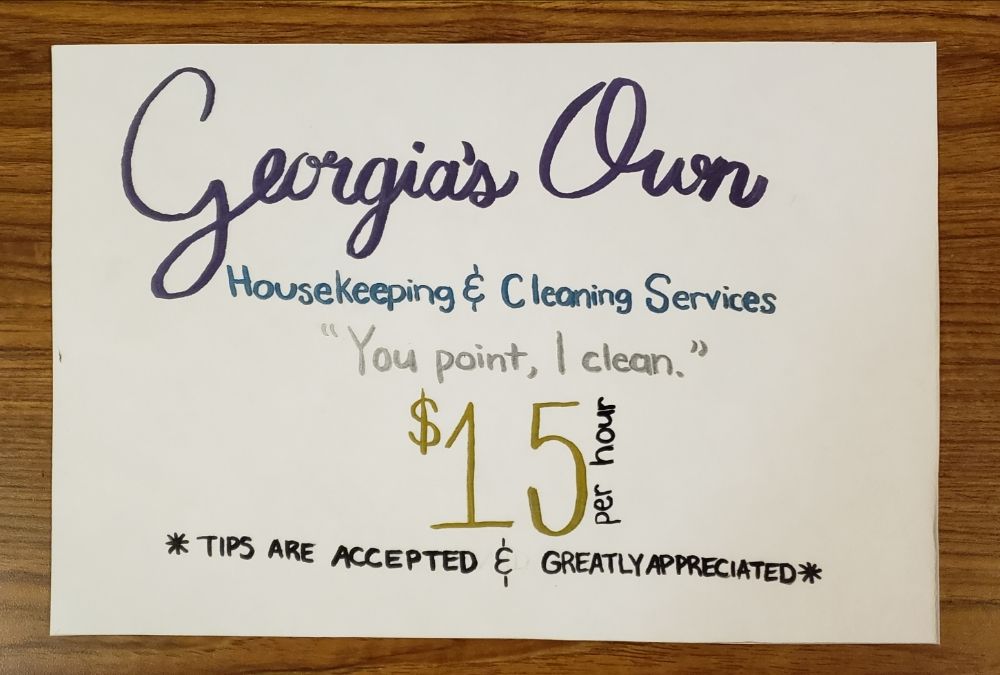 Georgia's Own
Housekeeping & Cleaning Services
"You point, I clean."
$15 per hour
* TIPS ARE ACCEPTED & GREATLY APPRECIATED *